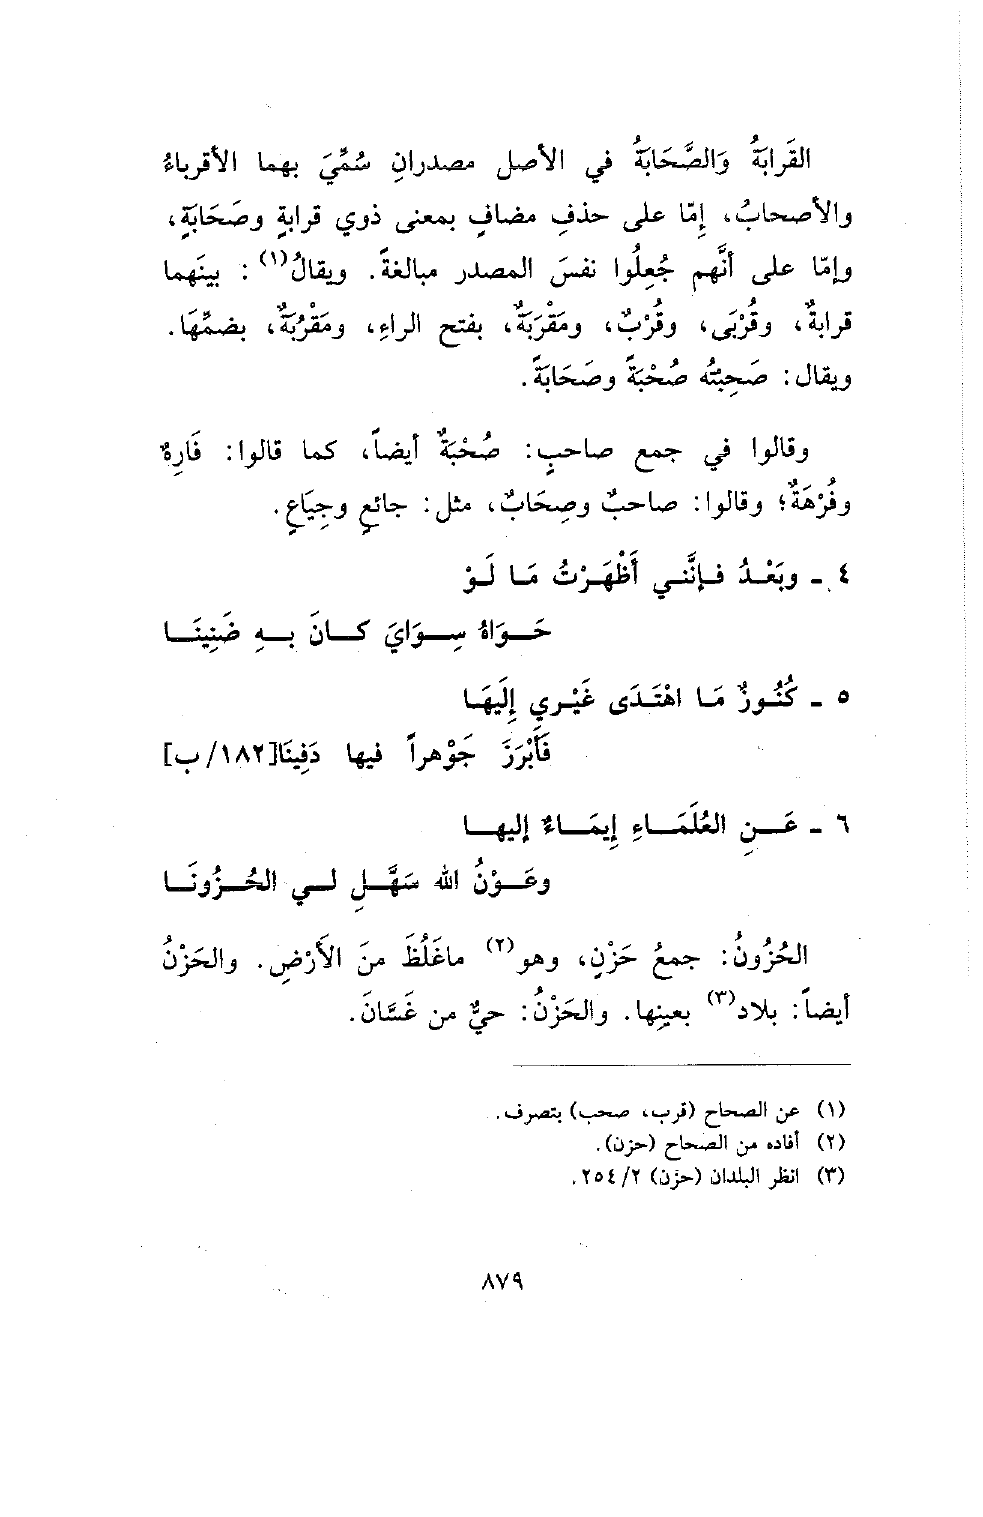 القَرابَةُ وَالصَّحَابَةُ في الأصل مصدرانِ سُمِّيَ بهما الأقرباءُ
والأصحابُ، إِمّا على حذفِ مضافٍ بمعنى ذوي قرابةٍ وصَحَابَةٍ،
وإمّا على أنَّهم جُعِلُوا نفسَ المصدر مبالغةً. ويقالُ(١): بينَهما
قرابةٌ، وقُرْبَى، وقُرْبٌ، ومَقْرَبَةٌ، بفتح الراءِ، ومَقْرُبَةٌ، بضمِّهَا.
ويقال: صَحِبتُه صُحْبَةً وصَحَابَةً.
وقالوا في جمع صاحبٍ: صُحْبَةٌ أيضاً، كما قالوا: فَارِهٌ
وفُرْهَةٌ؛ وقالوا: صاحبٌ وصِحَابٌ، مثل: جائعٍ وجِيَاعٍ.
٤ ـ وبَعْدُ فإنَّني أَظْهَرْتُ مَا لَوْ
حَوَاهُ سِوَايَ كانَ بهِ ضَنِينَا
٥ ـ كُنُوزٌ مَا اهْتَدَى غَيْرِي إِلَيهَا
فَأَبْرَزَ جَوْهراً فيها دَفِينَا[١٨٢/ب]
٦ ـ عَنِ العُلَمَاءِ إِيمَاءٌ إليها
وعَوْنُ الله سَهَّلِ لي الحُزُونَا
الحُزُونُ: جمعُ حَزْنٍ، وهو(٢) ماغَلُظَ منَ الأَرْضِ. والحَزْنُ
أيضاً: بلاد(٣) بعينها. والحَزْنُ: حيٌّ من غَسَّانَ.
(١) عن الصحاح (قرب، صحب) بتصرف.
(٢) أفاده من الصحاح (حزن).
(٣) انظر البلدان (حزن) ٢/ ٢٥٤.
٨٧٩